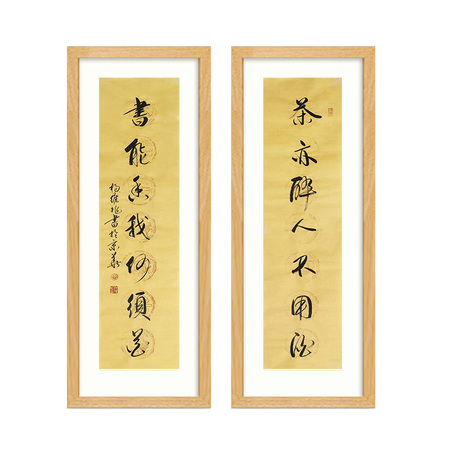 茶亦醉人不用酒
書能香我何須花
書於京華